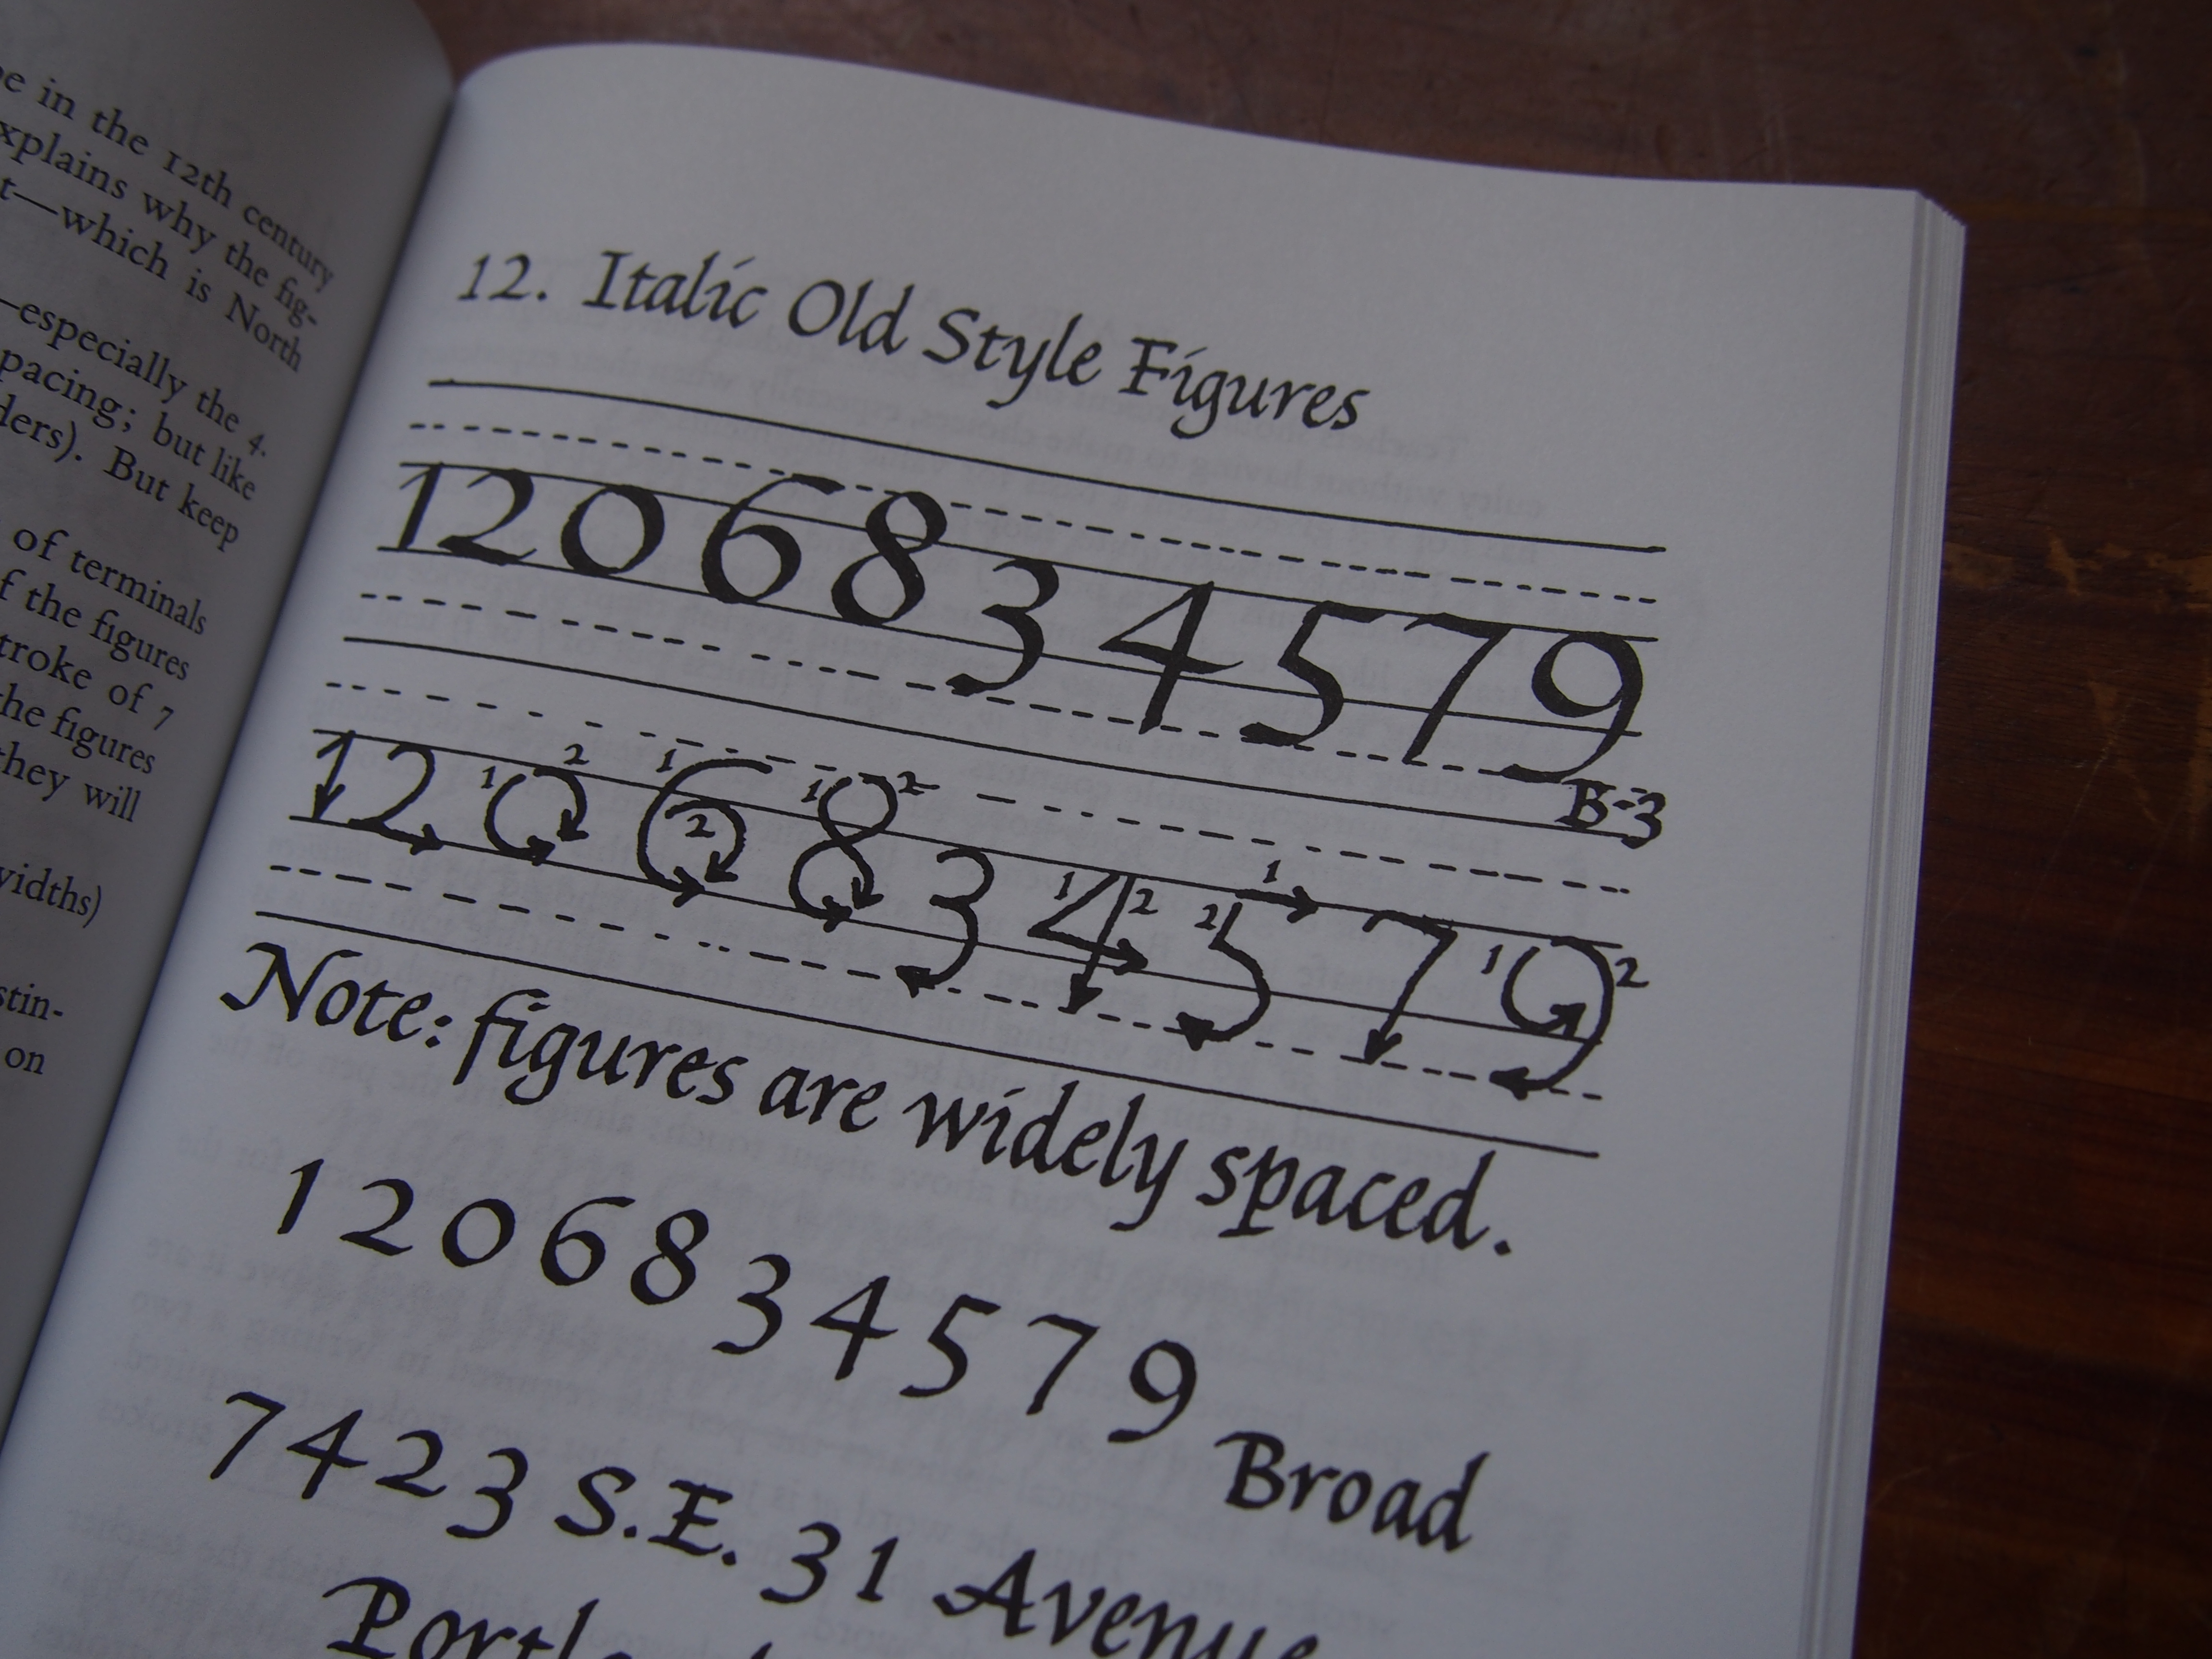 e in the 12th century
xplains why the fig-
t—which is North
—especially the 4.
pacing; but like
ders). But keep
of terminals
f the figures
troke of 7
he figures
they will
vidths)
stin-
on
12. Italic Old Style Figures
1206834579
B-3
12 1 2 0 1 2 6 1 2 8 3 1 2 4 2 1 5 7 1 2 9
Note: figures are widely spaced.
1 2 0 6 8 3 4 5 7 9
Broad
7423 S.E. 31 Avenue